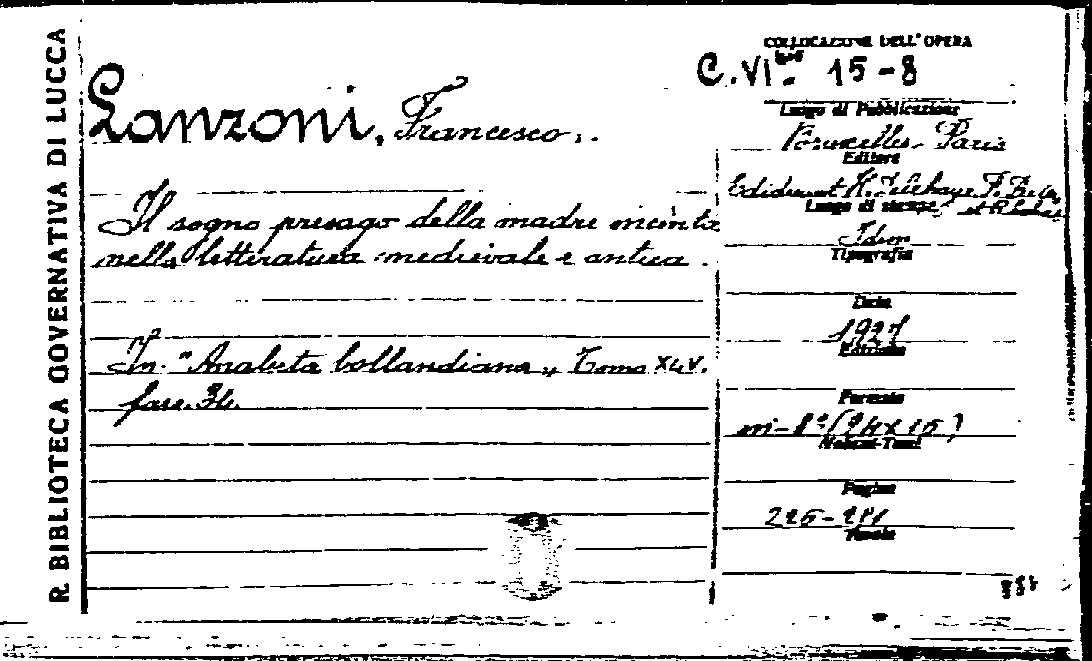 R. BIBLIOTECA GOVERNATIVA DI LUCCA
COLLOCAZIONE DELL'OPERA
C. VI bis 15-8
Lanzoni, Francesco.
Luogo di Pubblicazione
Bruxelles, Paris
Editore
Ediderunt H. Delehaye, P.
Luogo di stampa
Idem
Tipografia
Il sogno presago della madre incinta
nella letteratura medievale e antica.
Data
1927
Formato
in-8° (24x15)
Volumi-Tomi
Pagine
Tavole
In "Analecta bollandiana" Tomo XLV.
fasc. 3